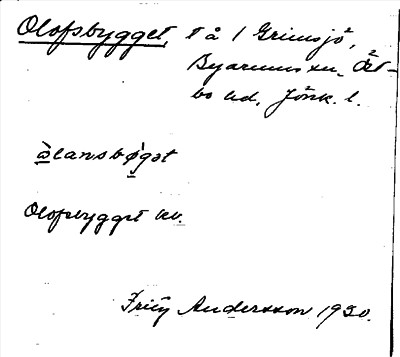 Olofsbygget, tå / Grimsjö,
Byarums sn, Öst-
bo hd, Jönk. l.
ɷ̀lansbø̀gət
Olofsbygget kv.
Andersson 1930.